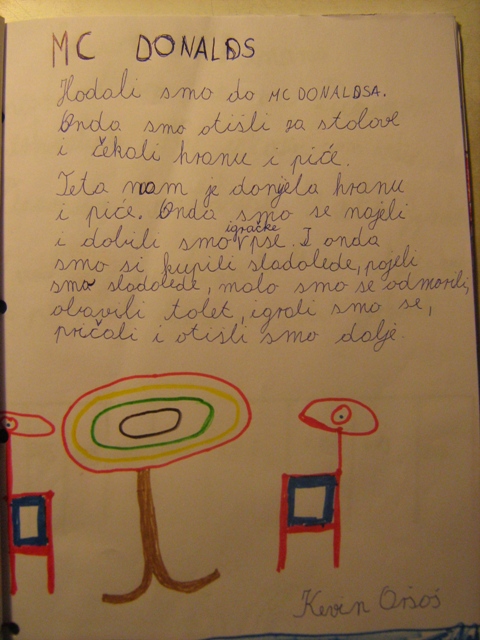 MC DONALDS
Hodali smo do MC DONALDSA.
Onda smo otišli za stolove
i čekali hranu i piće.
Teta nam je donjela hranu
i piće. Onda smo se najeli
igračke
i dobili smo vpse. I onda
smo si kupili sladolede, pojeli
smo sladolede, malo smo se odmorili,
obavili tolet, igrali smo se,
pričali i otišli smo dalje.
Kevin Oršoš